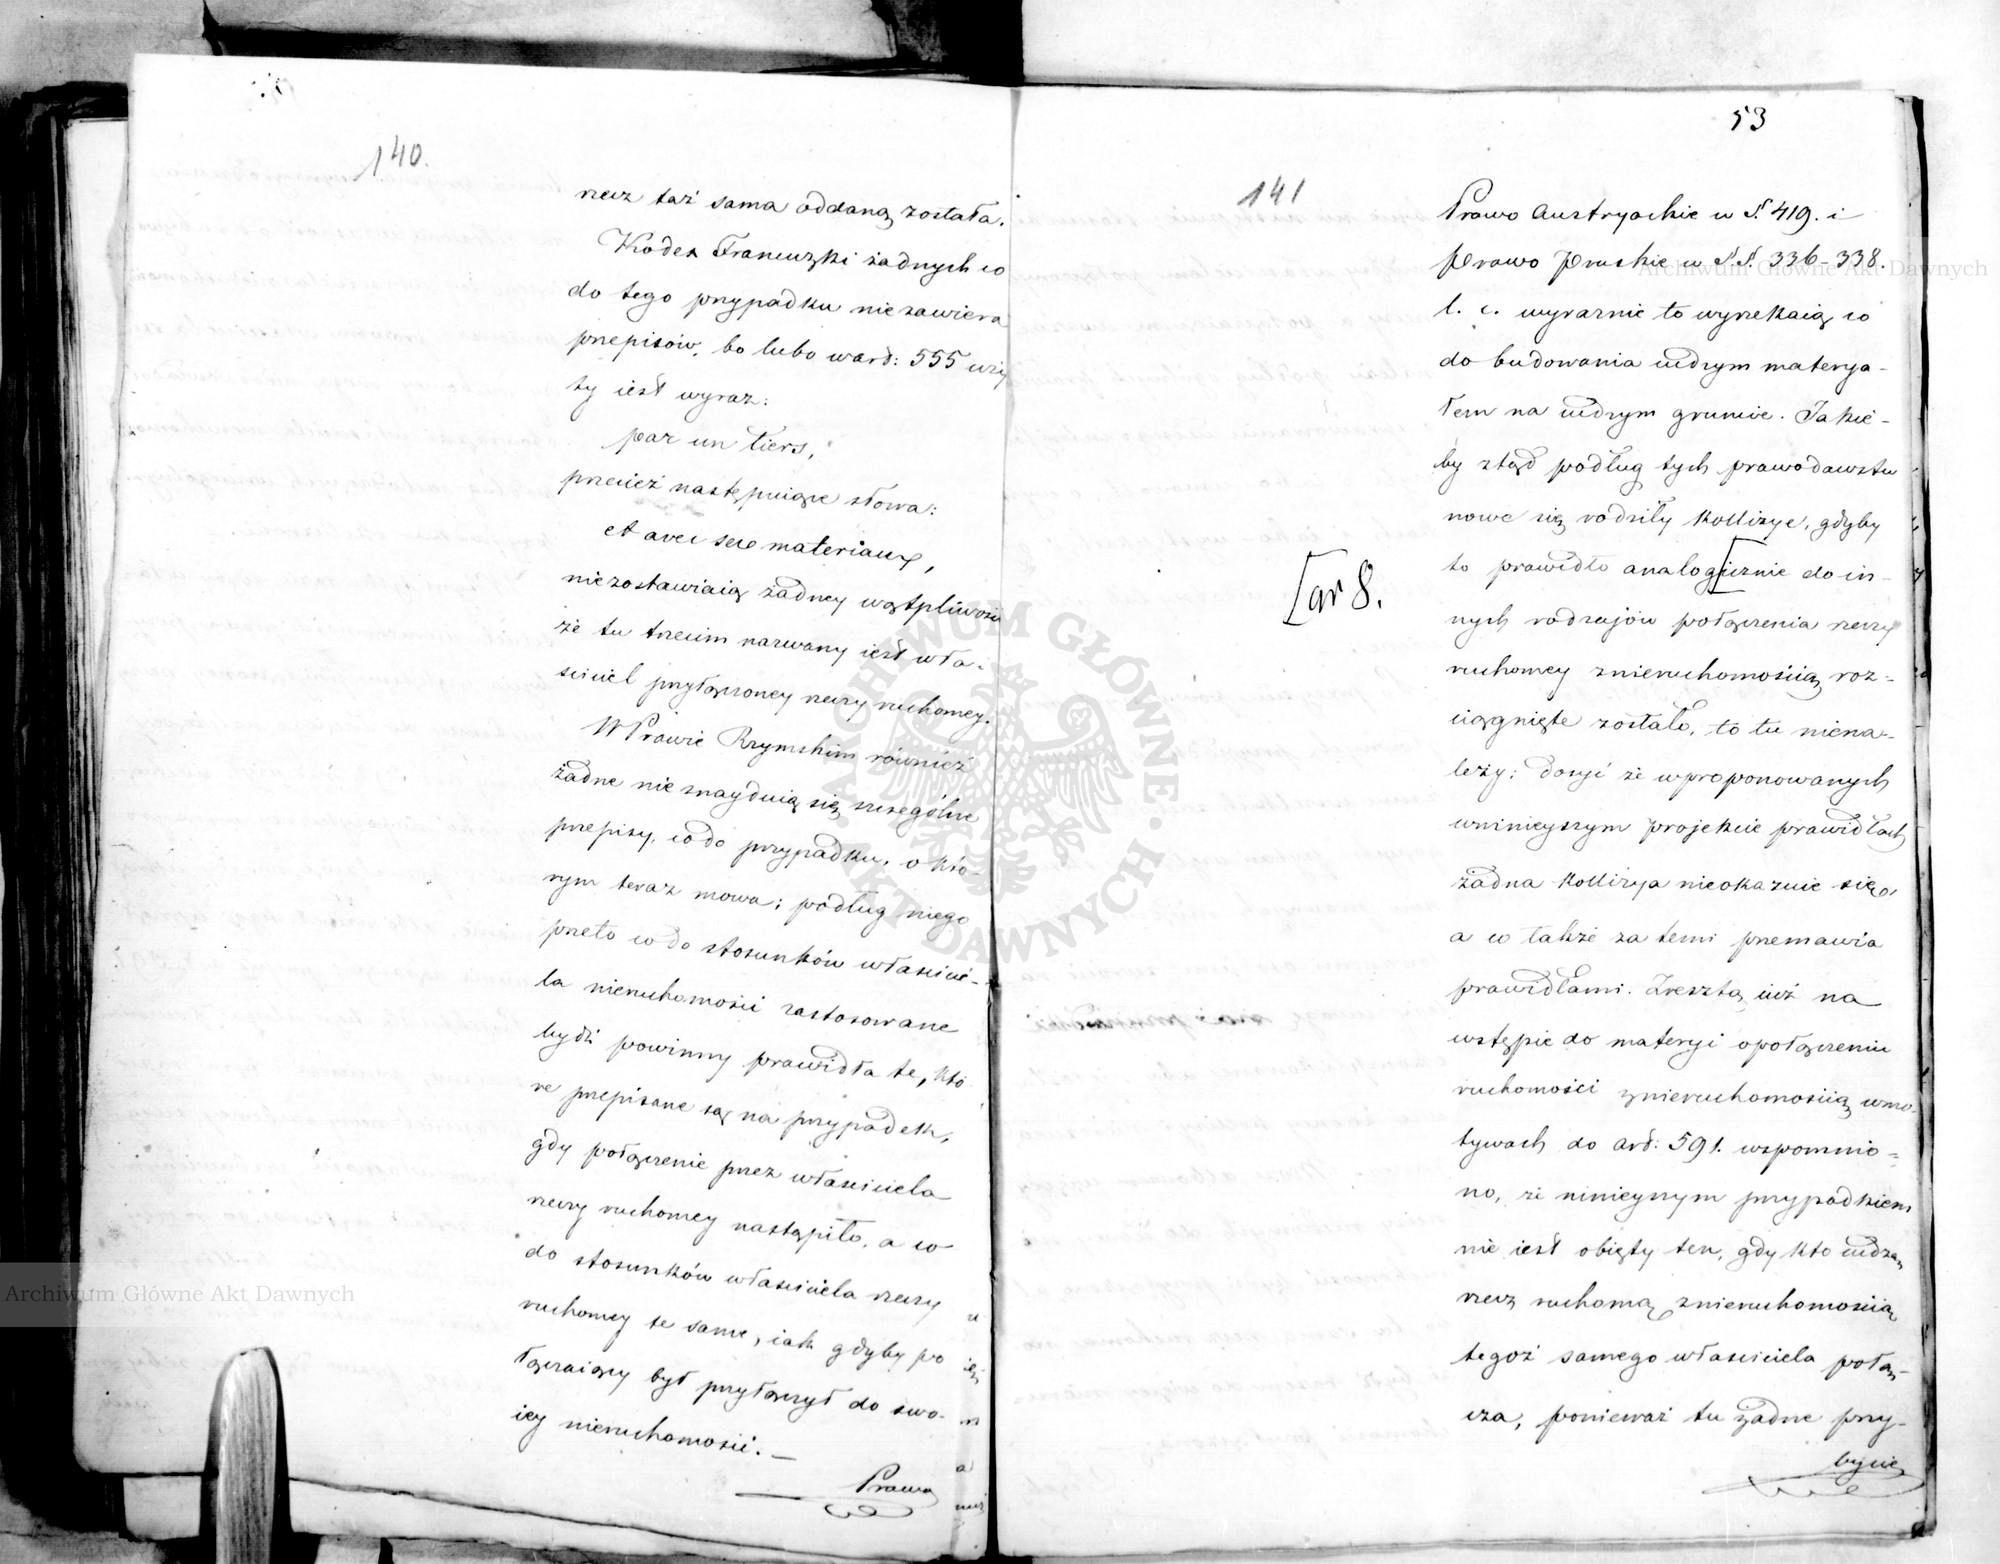 140.
rzecz taż sama oddaną została.
Kodex Francuzki żadnych co
do tego przypadku nie zawiera
przepisów, bo lubo w art: 555 uży
ty iest wyraz:
par un tiers,
przecież następuiące słowa:
et avec ses materiaux,
niezostawiaią żadney wątpliwości
że tu trzecim nazwany iest wła-
ściciel przyłączoney rzeczy ruchomey.
W Prawie Rzymskim również
żadne nie znayduią się szczególne
przepisy, co do przypadku, o któ-
rym teraz mowa; podług niego
przeto co do stosunków właścicie-
la nieruchomości zastosowane
bydź powinny prawidła te, któ
re przepisane są na przypadek,
gdy połączenie przez właściciela
rzeczy ruchomey nastąpiło, a co
do stosunków właściciela rzeczy
ruchomey te same, iak gdyby po
łączaiący był przyłączył do swo-
iey nieruchomości. —
Prawo
53
141
Prawo Austryackie w §. 419. i
Prawo Pruskie w §§. 336-338.
l. c. wyraznie to wyrzekaią co
do budowania cudzym materya-
łem na cudzym gruncie. Jakie-
by ztąd podług tych prawodawstw
nowe się rodziły kollizye, gdyby
to prawidło analog[icznie do in-
[ar 8.
nych rodzajów połączenia rzeczy
ruchomey z nieruchomością roz-
ciągnięte zostało, to tu niena-
leży; dosyć że w proponowanych
w ninieyszym projekcie prawidłach
żadna kollizya nieokazuie się,
a co także za temi przemawia
prawidłami. Zresztą iuż na
wstępie do materyi o połączeniu
ruchomości z nieruchomością w mo-
tywach do art: 591. wspomnio-
no, że ninieyszym przypadkiem
nie iest obięty ten, gdy kto cudzą
rzecz ruchomą z nieruchomością
tegoż samego właściciela połą-
cza, ponieważ tu żadne przy-
bycie
ARCHIWUM GŁÓWNE AKT DAWNYCH
Archiwum Główne Akt Dawnych
Archiwum Główne Akt Dawnych